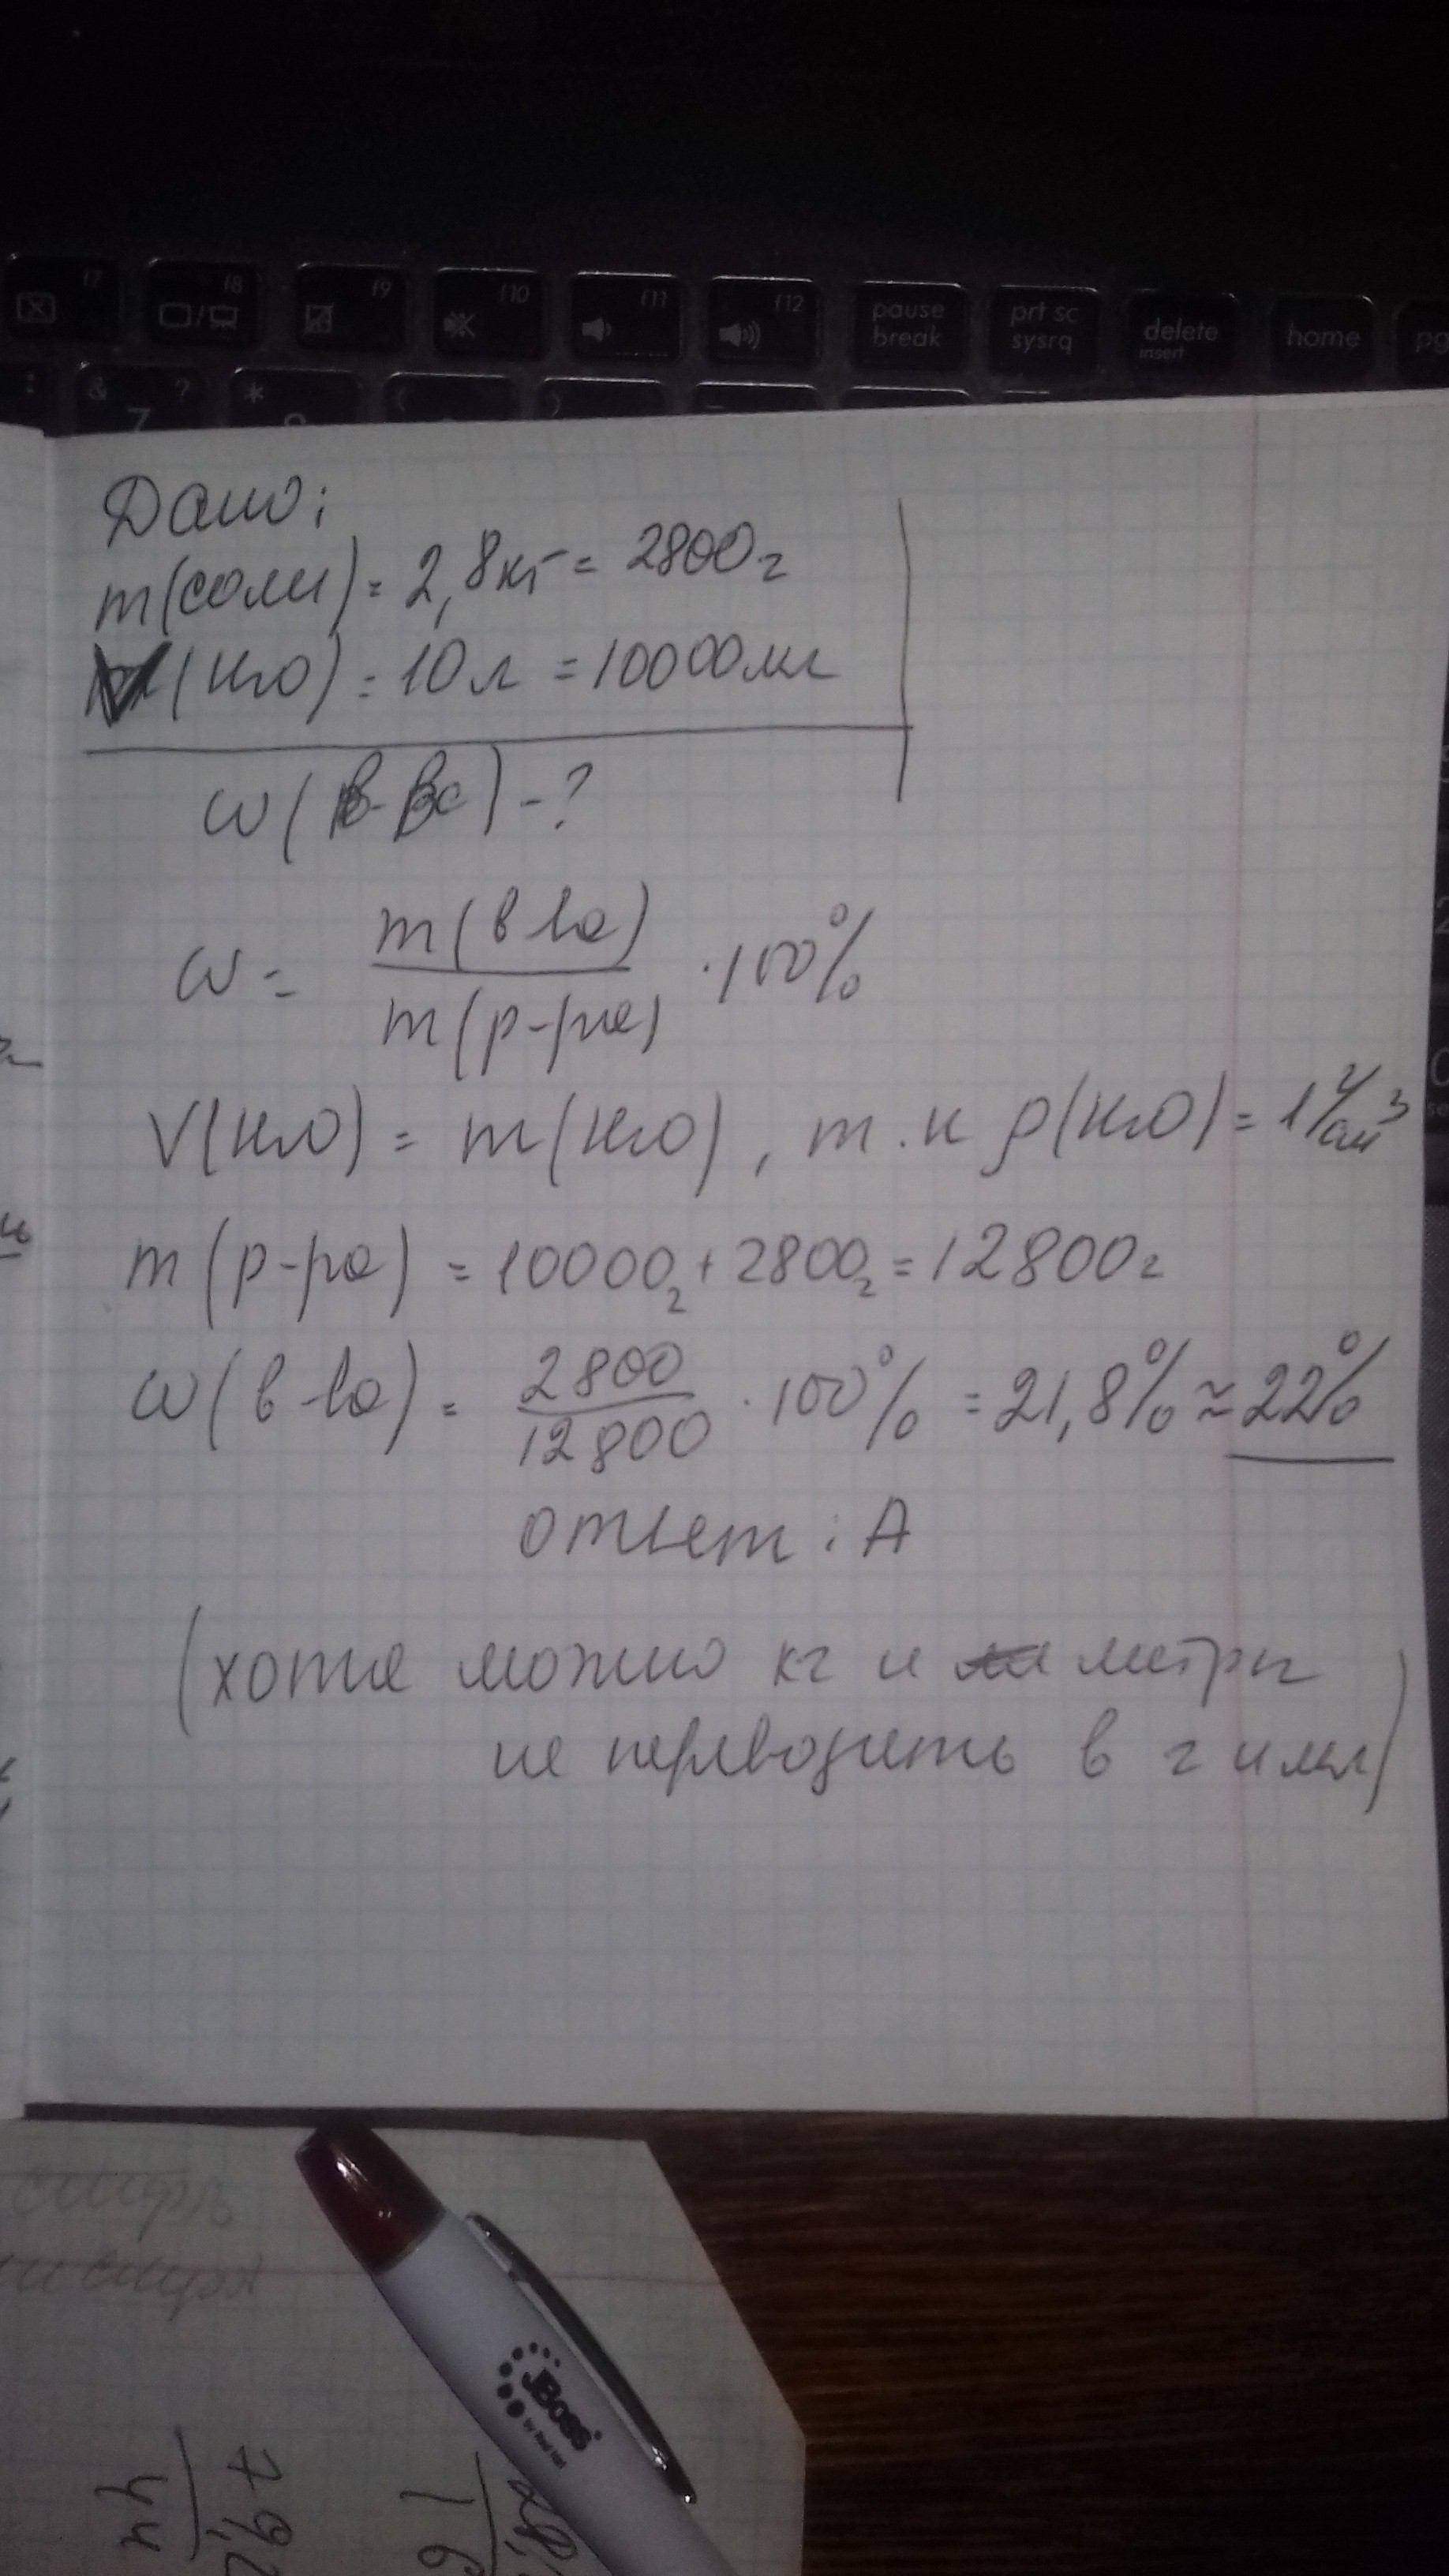 f7 f8 f9 f10 f11 f12 pause break prt sc sysrq delete insert home pg
& 7 ? * ( ) _
Дано:
m(соли) = 2,8кг = 2800г
V(H2O) = 10л = 10000мл
ω(в-ва) - ?
ω = m(в-ва) / m(р-ра) · 100%
V(H2O) = m(H2O), т.к ρ(H2O) = 1 г/см³
m(р-ра) = 10000г + 2800г = 12800г
ω(в-ва) = 2800 / 12800 · 100% = 21,8% ≈ 22%
ответ: А
(хотя можно кг и литры
не переводить в г и мл)
JBoss
by Red Hat